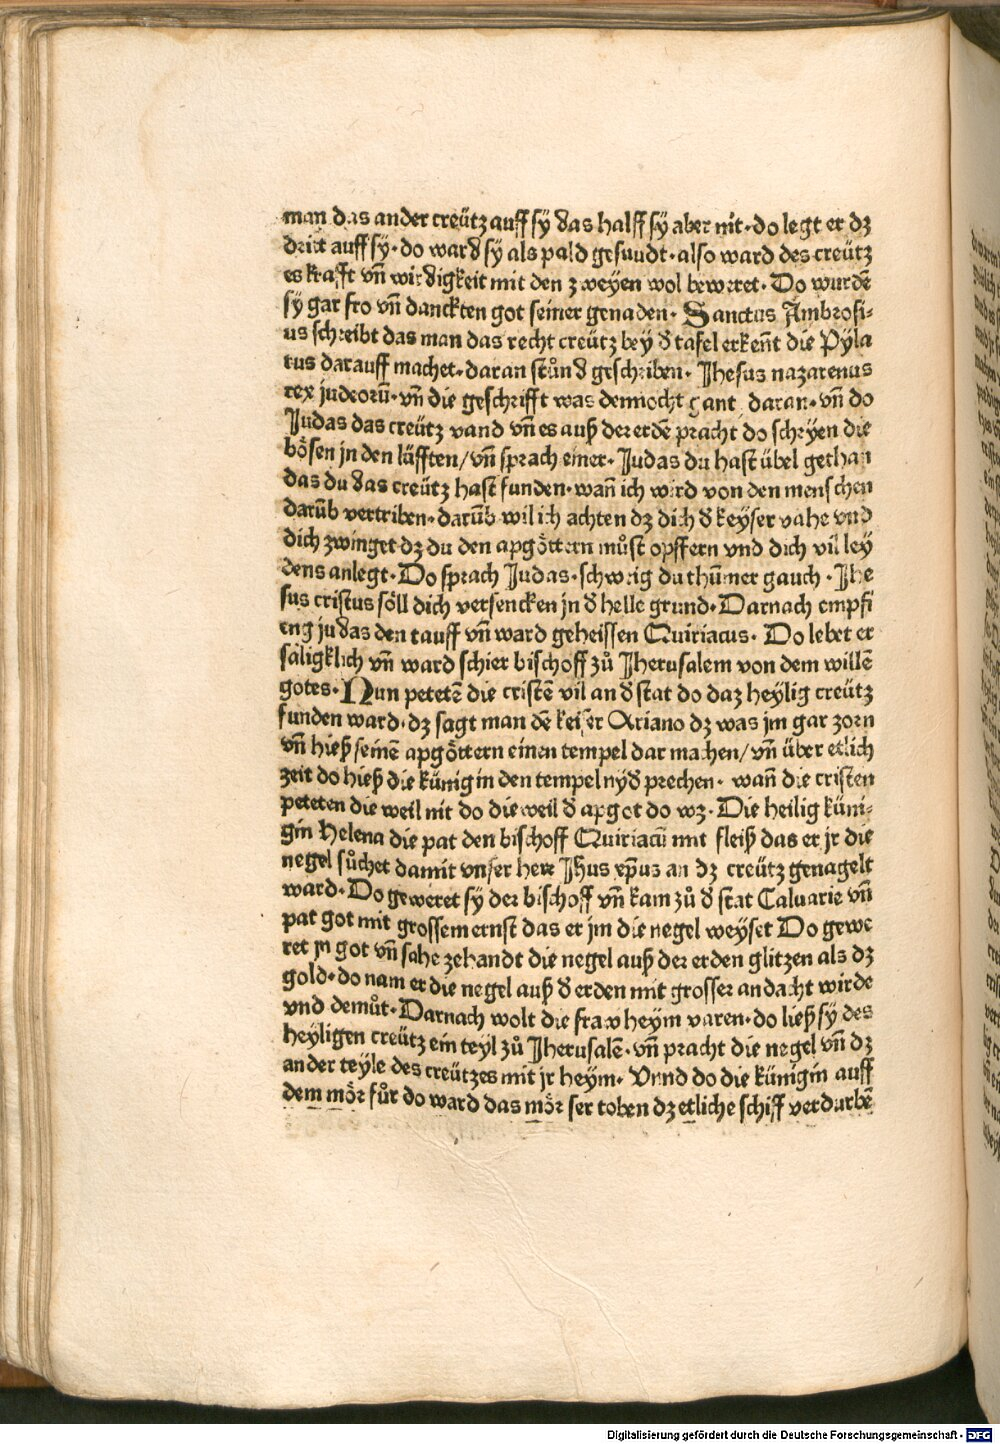 man das ander creütz auff sÿ das halff sÿ aber nit· do legt er dz
dritt auff sÿ· do ward sÿ als pald gesundt· also ward des creütz
es krafft vñ wirdigkeit mit den zweyen wol beweret· Do wurdē
sÿ gar fro vñ danckten got seiner genaden· Sanctus Ambrosi-
us schreibt das man das recht creütz bey d̄ tafel erkent die Pÿla
tus darauff machet· daran stůnd geschriben· Jhesus nazarenus
rex judeorū· vñ die geschrifft was dennocht gantz daran· vñ do
Judas das creütz vand vñ es auß der erdē pracht do schryen die
bösen jn den lüfften/ vñ sprach einer· Judas du hast übel gethan
das du das creütz hast funden· wañ ich wird von den menschen
darūb vertriben· darūb wil ich achten dz dich d̄ keÿser vahe vnd
dich zwinget dz du den apgöttern můst opffern vnd dich vil ley
dens anlegt· Do sprach Judas· schweig du thummer gauch· Jhe
sus cristus söll dich versencken jn d̄ helle grund· Darnach empfi
eng judas den tauff vñ ward geheissen Quiriacus· Do lebet er
säligklich vñ ward schier bischoff zů Jherusalem von dem willē
gotes· Nun petetē die cristē vil an d̄ stat do daz heÿlig creütz
funden ward· dz sagt man dē keiser Ariano dz was jm gar zorn
vñ hieß seinē apgöttern einen tempel dar machen/ vñ über etlich
zeit do hieß die künigin den tempel nÿd̄ prechen· wañ die cristen
peteten die weil nit do die weil d̄ apgot do wz· Die heilig küni-
gin Helena die pat den bischoff Quiriacū mit fleiß das er jr die
negel sůchet damit vnser herr Jhus xp̄us an dz creütz genagelt
ward· Do geweret sÿ der bischoff vñ kam zů d̄ stat Caluarie vñ
pat got mit grossem ernst das er jm die negel weÿset Do gewe
ret jn got vñ sahe zehandt die negel auß der erden glitzen als dz
gold· do nam er die negel auß d̄ erden mit grosser andacht wirde
vnd demůt· Darnach wolt die fraw heÿm varen· do ließ sÿ des
heÿligen creütz ein teyl zů Jherusalē· vñ pracht die negel vñ dz
ander teÿle des creützes mit jr heÿm· Vnnd do die künigin auff
dem mör fůr do ward das mör ser toben dz etliche schiff verdurbē
Digitalisierung gefördert durch die Deutsche Forschungsgemeinschaft - DFG